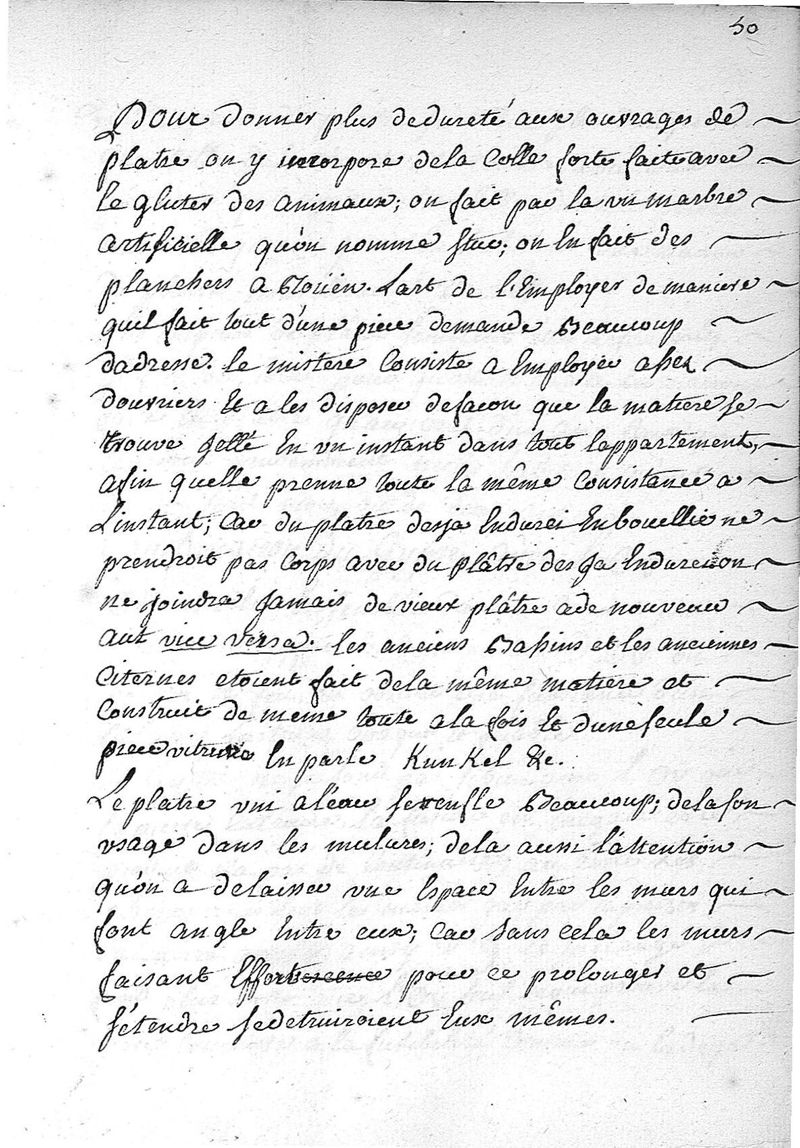 50
Pour donner plus de dureté aux ouvrages de
platre on y incorpore de la Colle forte faite avec
le gluten des animaux; on fait par la un marbre
artificielle qu'on nomme stuc; on En fait des
planchers a Roüen. L'art de l'Employer de maniere
quil fait tout d'une piece demande Beaucoup
dadresse. Le mistere Consiste a Employer assez
douvriers Et a les disposer de facon que la matiere se
trouve Jetté En un instant dans tout lappartement,
afin quelle prenne toute la même Consistance a
L'instant; Car du platre desja Endurci En bouellie ne
prendroit pas Corps avec du plâtre des Ja Endurci on
ne joindra Jamais de vieux plâtre a de nouveau
aut vice versa. les anciens Bassins et les anciennes
Citernes etoient fait de la même matiére et
Construit de meme toute a la fois Et dune seule
piece vitruve En parle Kunkel &c.
Le platre uni a l'eau se renfle Beaucoup; de la son
usage dans les mulures; de la aussi l'attention
qu'on a de laisser une Espace Entre les murs qui
font angle Entre eux; Car sans cela les murs
faisant Effort pour ce prolonger et
s'étendre se detruiroient Eux mêmes.